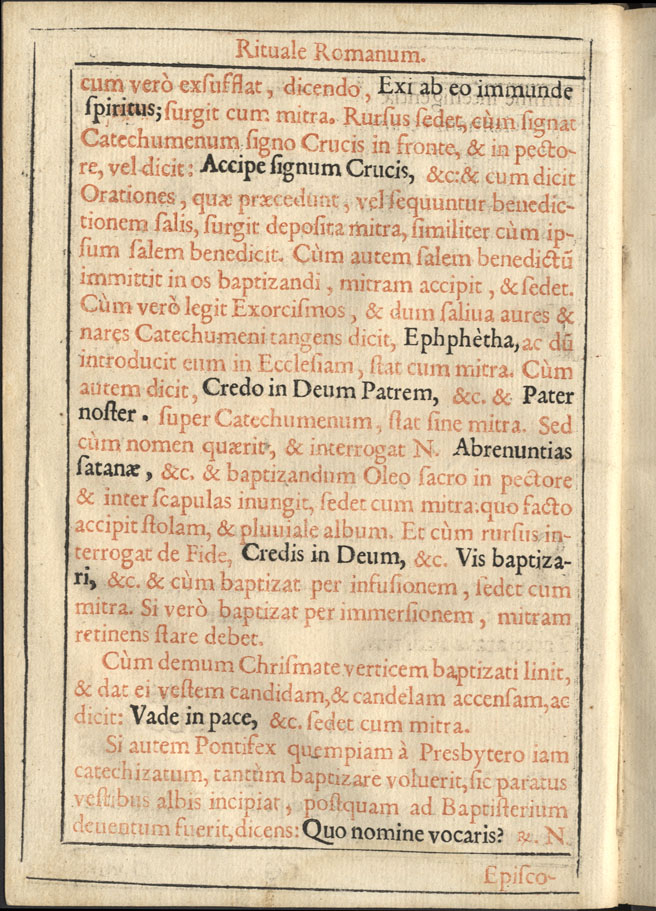 Rituale Romanum.
cum verò exſufflat, dicendo, Exi ab eo immunde
ſpiritus; ſurgit cum mitra. Rurſus ſedet, cùm ſignat
Catechumenum ſigno Crucis in fronte, & in pecto-
re, vel dicit: Accipe ſignum Crucis, &c: & cum dicit
Orationes, quæ præcedunt, vel ſequuntur benedic-
tionem ſalis, ſurgit depoſita mitra, ſimiliter cùm ip-
ſum ſalem benedicit. Cùm autem ſalem benedictũ
immittit in os baptizandi, mitram accipit, & ſedet.
Cùm verò legit Exorciſmos, & dum ſaliua aures &
nares Catechumeni tangens dicit, Ephphètha, ac dũ
introducit eum in Eccleſiam, ſtat cum mitra. Cùm
autem dicit, Credo in Deum Patrem, &c. & Pater
noſter. ſuper Catechumenum, ſtat ſine mitra. Sed
cùm nomen quærit, & interrogat N. Abrenuntias
ſatanæ, &c. & baptizandum Oleo sacro in pectore
& inter ſcapulas inungit, ſedet cum mitra: quo facto
accipit ſtolam, & pluuiale album. Et cùm rurſus in-
terrogat de Fide, Credis in Deum, &c. Vis baptiza-
ri, &c. & cùm baptizat per infuſionem, ſedet cum
mitra. Si verò baptizat per immerſionem, mitram
retinens ſtare debet.
Cùm demum Chriſmate verticem baptizati linit,
& dat ei veſtem candidam, & candelam accenſam, ac
dicit: Vade in pace, &c. ſedet cum mitra.
Si autem Pontifex quempiam à Presbytero iam
catechizatum, tantùm baptizare voluerit, ſic paratus
veſtibus albis incipiat, poſtquam ad Baptiſterium
deuentum fuerit, dicens: Quo nomine vocaris? ℟. N.
Epiſco-